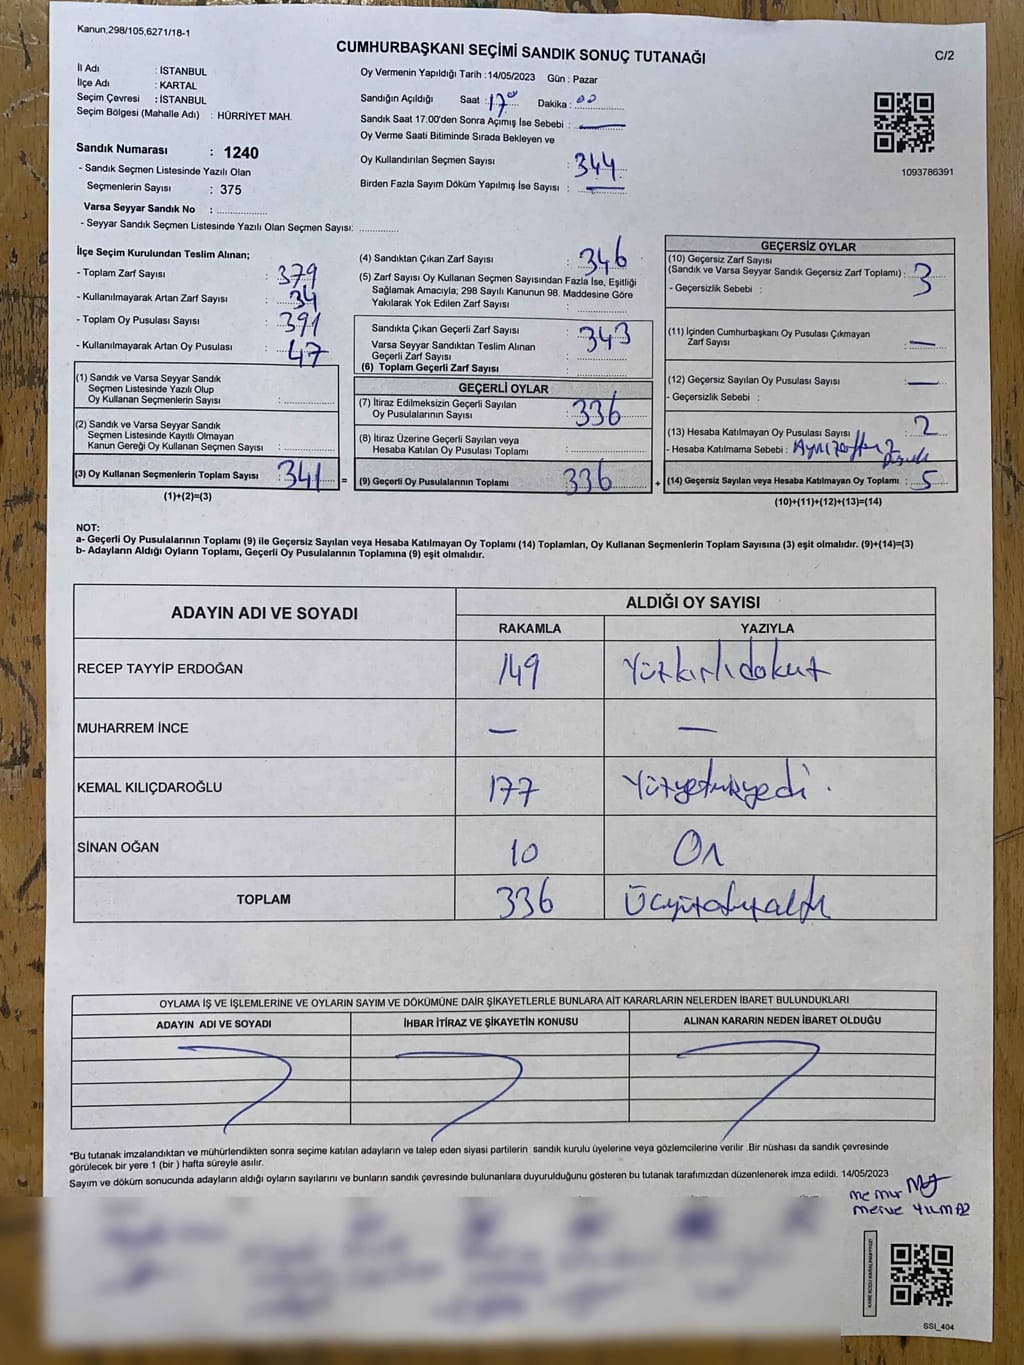 Kanun,298/105,6271/18-1
CUMHURBAŞKANI SEÇİMİ SANDIK SONUÇ TUTANAĞI
C/2
İl Adı : İSTANBUL
İlçe Adı : KARTAL
Seçim Çevresi : İSTANBUL
Seçim Bölgesi (Mahalle Adı) : HÜRRİYET MAH.
Sandık Numarası : 1240
- Sandık Seçmen Listesinde Yazılı Olan
Seçmenlerin Sayısı : 375
Varsa Seyyar Sandık No : ................
- Seyyar Sandık Seçmen Listesinde Yazılı Olan Seçmen Sayısı: .............
Oy Vermenin Yapıldığı Tarih :14/05/2023 Gün : Pazar
Sandığın Açıldığı Saat : 17 00 Dakika : 00
Sandık Saat 17:00'den Sonra Açımış İse Sebebi : —
Oy Verme Saati Bitiminde Sırada Bekleyen ve
Oy Kullandırılan Seçmen Sayısı : 344
Birden Fazla Sayım Döküm Yapılmış İse Sayısı : —
1093786391
İlçe Seçim Kurulundan Teslim Alınan;
- Toplam Zarf Sayısı : 379
- Kullanılmayarak Artan Zarf Sayısı : 34
- Toplam Oy Pusulası Sayısı : 391
- Kullanılmayarak Artan Oy Pusulası : 47
(1) Sandık ve Varsa Seyyar Sandık
Seçmen Listesinde Yazılı Olup
Oy Kullanan Seçmenlerin Sayısı : .............
(2) Sandık ve Varsa Seyyar Sandık
Seçmen Listesinde Kayıtlı Olmayan
Kanun Gereği Oy Kullanan Seçmen Sayısı : .............
(3) Oy Kullanan Seçmenlerin Toplam Sayısı : 341 =
(1)+(2)=(3)
(4) Sandıktan Çıkan Zarf Sayısı : 346
(5) Zarf Sayısı Oy Kullanan Seçmen Sayısından Fazla İse, Eşitliği
Sağlamak Amacıyla; 298 Sayılı Kanunun 98. Maddesine Göre
Yakılarak Yok Edilen Zarf Sayısı : .............
Sandıkta Çıkan Geçerli Zarf Sayısı : 343
Varsa Seyyar Sandıktan Teslim Alınan
Geçerli Zarf Sayısı : .............
(6) Toplam Geçerli Zarf Sayısı : .............
GEÇERLİ OYLAR
(7) İtiraz Edilmeksizin Geçerli Sayılan
Oy Pusulalarının Sayısı : 336
(8) İtiraz Üzerine Geçerli Sayılan veya
Hesaba Katılan Oy Pusulası Toplamı : .............
(9) Geçerli Oy Pusulalarının Toplamı : 336 +
GEÇERSİZ OYLAR
(10) Geçersiz Zarf Sayısı
(Sandık ve Varsa Seyyar Sandık Geçersiz Zarf Toplamı) : 3
- Geçersizlik Sebebi :
(11) İçinden Cumhurbaşkanı Oy Pusulası Çıkmayan
Zarf Sayısı : —
(12) Geçersiz Sayılan Oy Pusulası Sayısı : —
- Geçersizlik Sebebi :
(13) Hesaba Katılmayan Oy Pusulası Sayısı : 2
- Hesaba Katılmama Sebebi : Aynı zarftan 2
(14) Geçersiz Sayılan veya Hesaba Katılmayan Oy Toplamı : 5
(10)+(11)+(12)+(13)=(14)
NOT:
a- Geçerli Oy Pusulalarının Toplamı (9) ile Geçersiz Sayılan veya Hesaba Katılmayan Oy Toplamı (14) Toplamları, Oy Kullanan Seçmenlerin Toplam Sayısına (3) eşit olmalıdır. (9)+(14)=(3)
b- Adayların Aldığı Oyların Toplamı, Geçerli Oy Pusulalarının Toplamına (9) eşit olmalıdır.
ADAYIN ADI VE SOYADI
ALDIĞI OY SAYISI
RAKAMLA YAZIYLA
RECEP TAYYİP ERDOĞAN 149 Yüzkırkdokuz
MUHARREM İNCE — —
KEMAL KILIÇDAROĞLU 177 Yüzyetmişyedi.
SİNAN OĞAN 10 On
TOPLAM 336 Üçyüzotuzaltı
OYLAMA İŞ VE İŞLEMLERİNE VE OYLARIN SAYIM VE DÖKÜMÜNE DAİR ŞİKAYETLERLE BUNLARA AİT KARARLARIN NELERDEN İBARET BULUNDUKLARI
ADAYIN ADI VE SOYADI İHBAR İTİRAZ VE ŞİKAYETİN KONUSU ALINAN KARARIN NEDEN İBARET OLDUĞU
*Bu tutanak imzalandıktan ve mühürlendikten sonra seçime katılan adayların ve talep eden siyasi partilerin sandık kurulu üyelerine veya gözlemcilerine verilir .Bir nüshası da sandık çevresinde
görülecek bir yere 1 (bir ) hafta süreyle asılır.
Sayım ve döküm sonucunda adayların aldığı oyların sayılarını ve bunların sandık çevresinde bulunanlara duyurulduğunu gösteren bu tutanak tarafımızdan düzenlenerek imza edildi. 14/05/2023
memur
merve YILMAZ
SSI_404